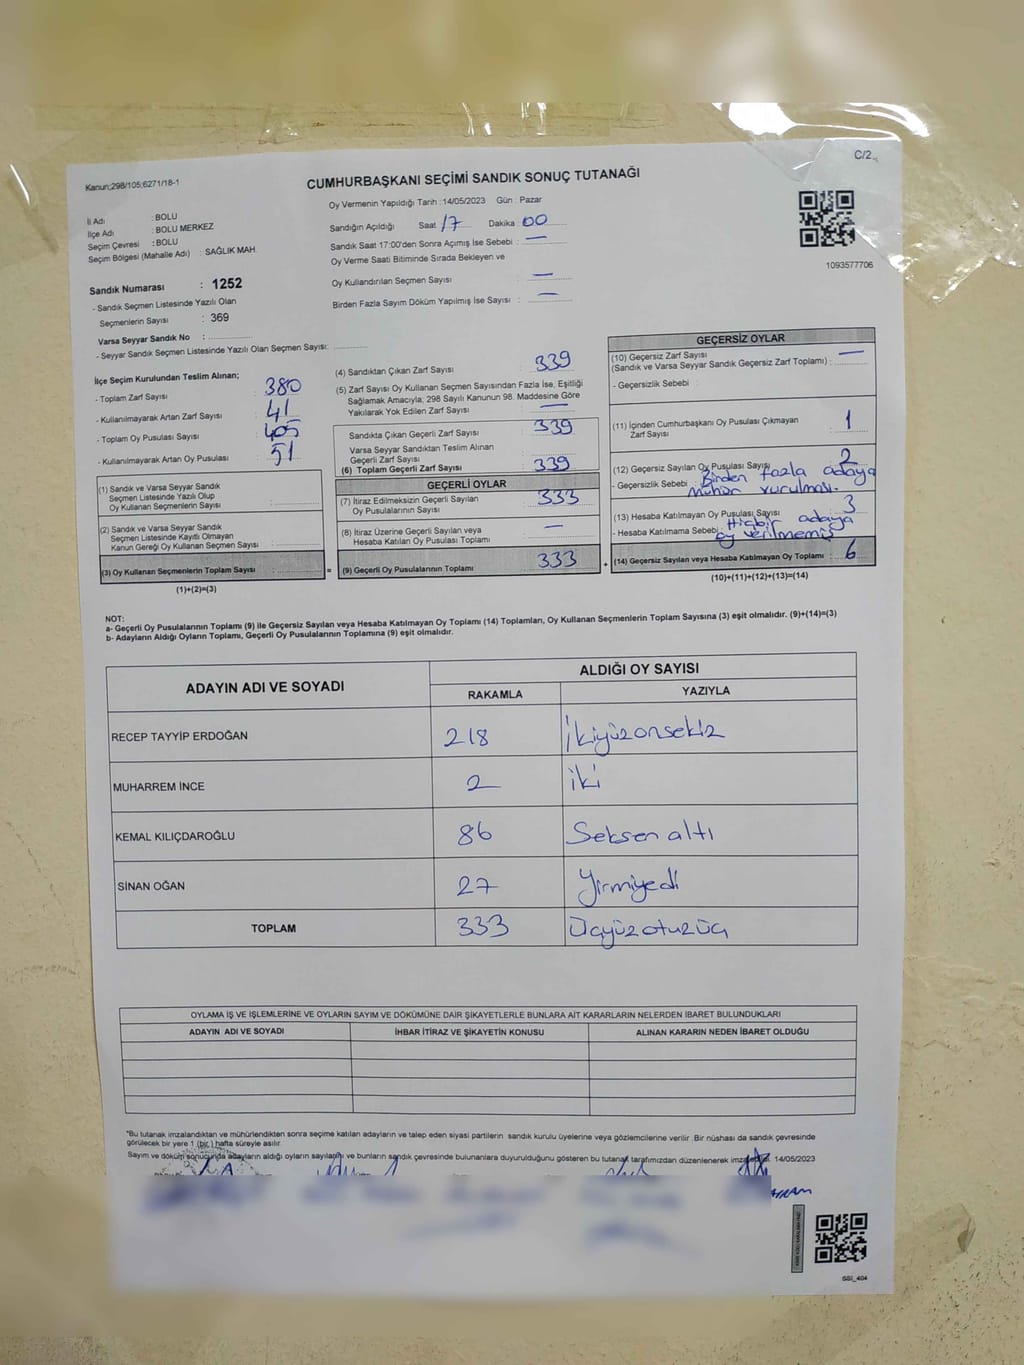 Kanun;298/105;6271/18-1
C/2
CUMHURBAŞKANI SEÇİMİ SANDIK SONUÇ TUTANAĞI
İl Adı : BOLU
İlçe Adı : BOLU MERKEZ
Seçim Çevresi : BOLU
Seçim Bölgesi (Mahalle Adı) : SAĞLIK MAH.
Oy Vermenin Yapıldığı Tarih :14/05/2023 Gün : Pazar
Sandığın Açıldığı Saat 17 Dakika 00
Sandık Saat 17:00'den Sonra Açımış İse Sebebi : —
Oy Verme Saati Bitiminde Sırada Bekleyen ve
Oy Kullandırılan Seçmen Sayısı : —
Birden Fazla Sayım Döküm Yapılmış İse Sayısı : —
1093577706
Sandık Numarası : 1252
- Sandık Seçmen Listesinde Yazılı Olan
Seçmenlerin Sayısı : 369
Varsa Seyyar Sandık No :
- Seyyar Sandık Seçmen Listesinde Yazılı Olan Seçmen Sayısı:
İlçe Seçim Kurulundan Teslim Alınan;
- Toplam Zarf Sayısı : 380
- Kullanılmayarak Artan Zarf Sayısı : 41
- Toplam Oy Pusulası Sayısı : 405
- Kullanılmayarak Artan Oy Pusulası : 51
(1) Sandık ve Varsa Seyyar Sandık
Seçmen Listesinde Yazılı Olup
Oy Kullanan Seçmenlerin Sayısı :
(2) Sandık ve Varsa Seyyar Sandık
Seçmen Listesinde Kayıtlı Olmayan
Kanun Gereği Oy Kullanan Seçmen Sayısı :
(3) Oy Kullanan Seçmenlerin Toplam Sayısı :
(1)+(2)=(3)
(4) Sandıktan Çıkan Zarf Sayısı : 339
(5) Zarf Sayısı Oy Kullanan Seçmen Sayısından Fazla İse, Eşitliği
Sağlamak Amacıyla; 298 Sayılı Kanunun 98. Maddesine Göre
Yakılarak Yok Edilen Zarf Sayısı : —
Sandıkta Çıkan Geçerli Zarf Sayısı : 339
Varsa Seyyar Sandıktan Teslim Alınan
Geçerli Zarf Sayısı :
(6) Toplam Geçerli Zarf Sayısı : 339
GEÇERLİ OYLAR
(7) İtiraz Edilmeksizin Geçerli Sayılan
Oy Pusulalarının Sayısı : 333
(8) İtiraz Üzerine Geçerli Sayılan veya
Hesaba Katılan Oy Pusulası Toplamı : —
(9) Geçerli Oy Pusulalarının Toplamı : 333
GEÇERSİZ OYLAR
(10) Geçersiz Zarf Sayısı
(Sandık ve Varsa Seyyar Sandık Geçersiz Zarf Toplamı) : —
- Geçersizlik Sebebi :
(11) İçinden Cumhurbaşkanı Oy Pusulası Çıkmayan
Zarf Sayısı : 1
(12) Geçersiz Sayılan Oy Pusulası Sayısı : 2
- Geçersizlik Sebebi : Birden fazla adaya
mühür vurulması.
(13) Hesaba Katılmayan Oy Pusulası Sayısı : 3
- Hesaba Katılmama Sebebi : Hiçbir adaya
oy verilmemiş
(14) Geçersiz Sayılan veya Hesaba Katılmayan Oy Toplamı : 6
(10)+(11)+(12)+(13)=(14)
NOT:
a- Geçerli Oy Pusulalarının Toplamı (9) ile Geçersiz Sayılan veya Hesaba Katılmayan Oy Toplamı (14) Toplamları, Oy Kullanan Seçmenlerin Toplam Sayısına (3) eşit olmalıdır. (9)+(14)=(3)
b- Adayların Aldığı Oyların Toplamı, Geçerli Oy Pusulalarının Toplamına (9) eşit olmalıdır.
ADAYIN ADI VE SOYADI
ALDIĞI OY SAYISI
RAKAMLA YAZIYLA
RECEP TAYYİP ERDOĞAN 218 İkiyüzonsekiz
MUHARREM İNCE 2 iki
KEMAL KILIÇDAROĞLU 86 Seksen altı
SİNAN OĞAN 27 Yirmiyedi
TOPLAM 333 Üçyüzotuzüç
OYLAMA İŞ VE İŞLEMLERİNE VE OYLARIN SAYIM VE DÖKÜMÜNE DAİR ŞİKAYETLERLE BUNLARA AİT KARARLARIN NELERDEN İBARET BULUNDUKLARI
ADAYIN ADI VE SOYADI İHBAR İTİRAZ VE ŞİKAYETİN KONUSU ALINAN KARARIN NEDEN İBARET OLDUĞU
*Bu tutanak imzalandıktan ve mühürlendikten sonra seçime katılan adayların ve talep eden siyasi partilerin sandık kurulu üyelerine veya gözlemcilerine verilir .Bir nüshası da sandık çevresinde
görülecek bir yere 1 (bir ) hafta süreyle asılır.
Sayım ve döküm sonucunda adayların aldığı oyların sayılarını ve bunların sandık çevresinde bulunanlara duyurulduğunu gösteren bu tutanak tarafımızdan düzenlenerek 14/05/2023
SSİ_404